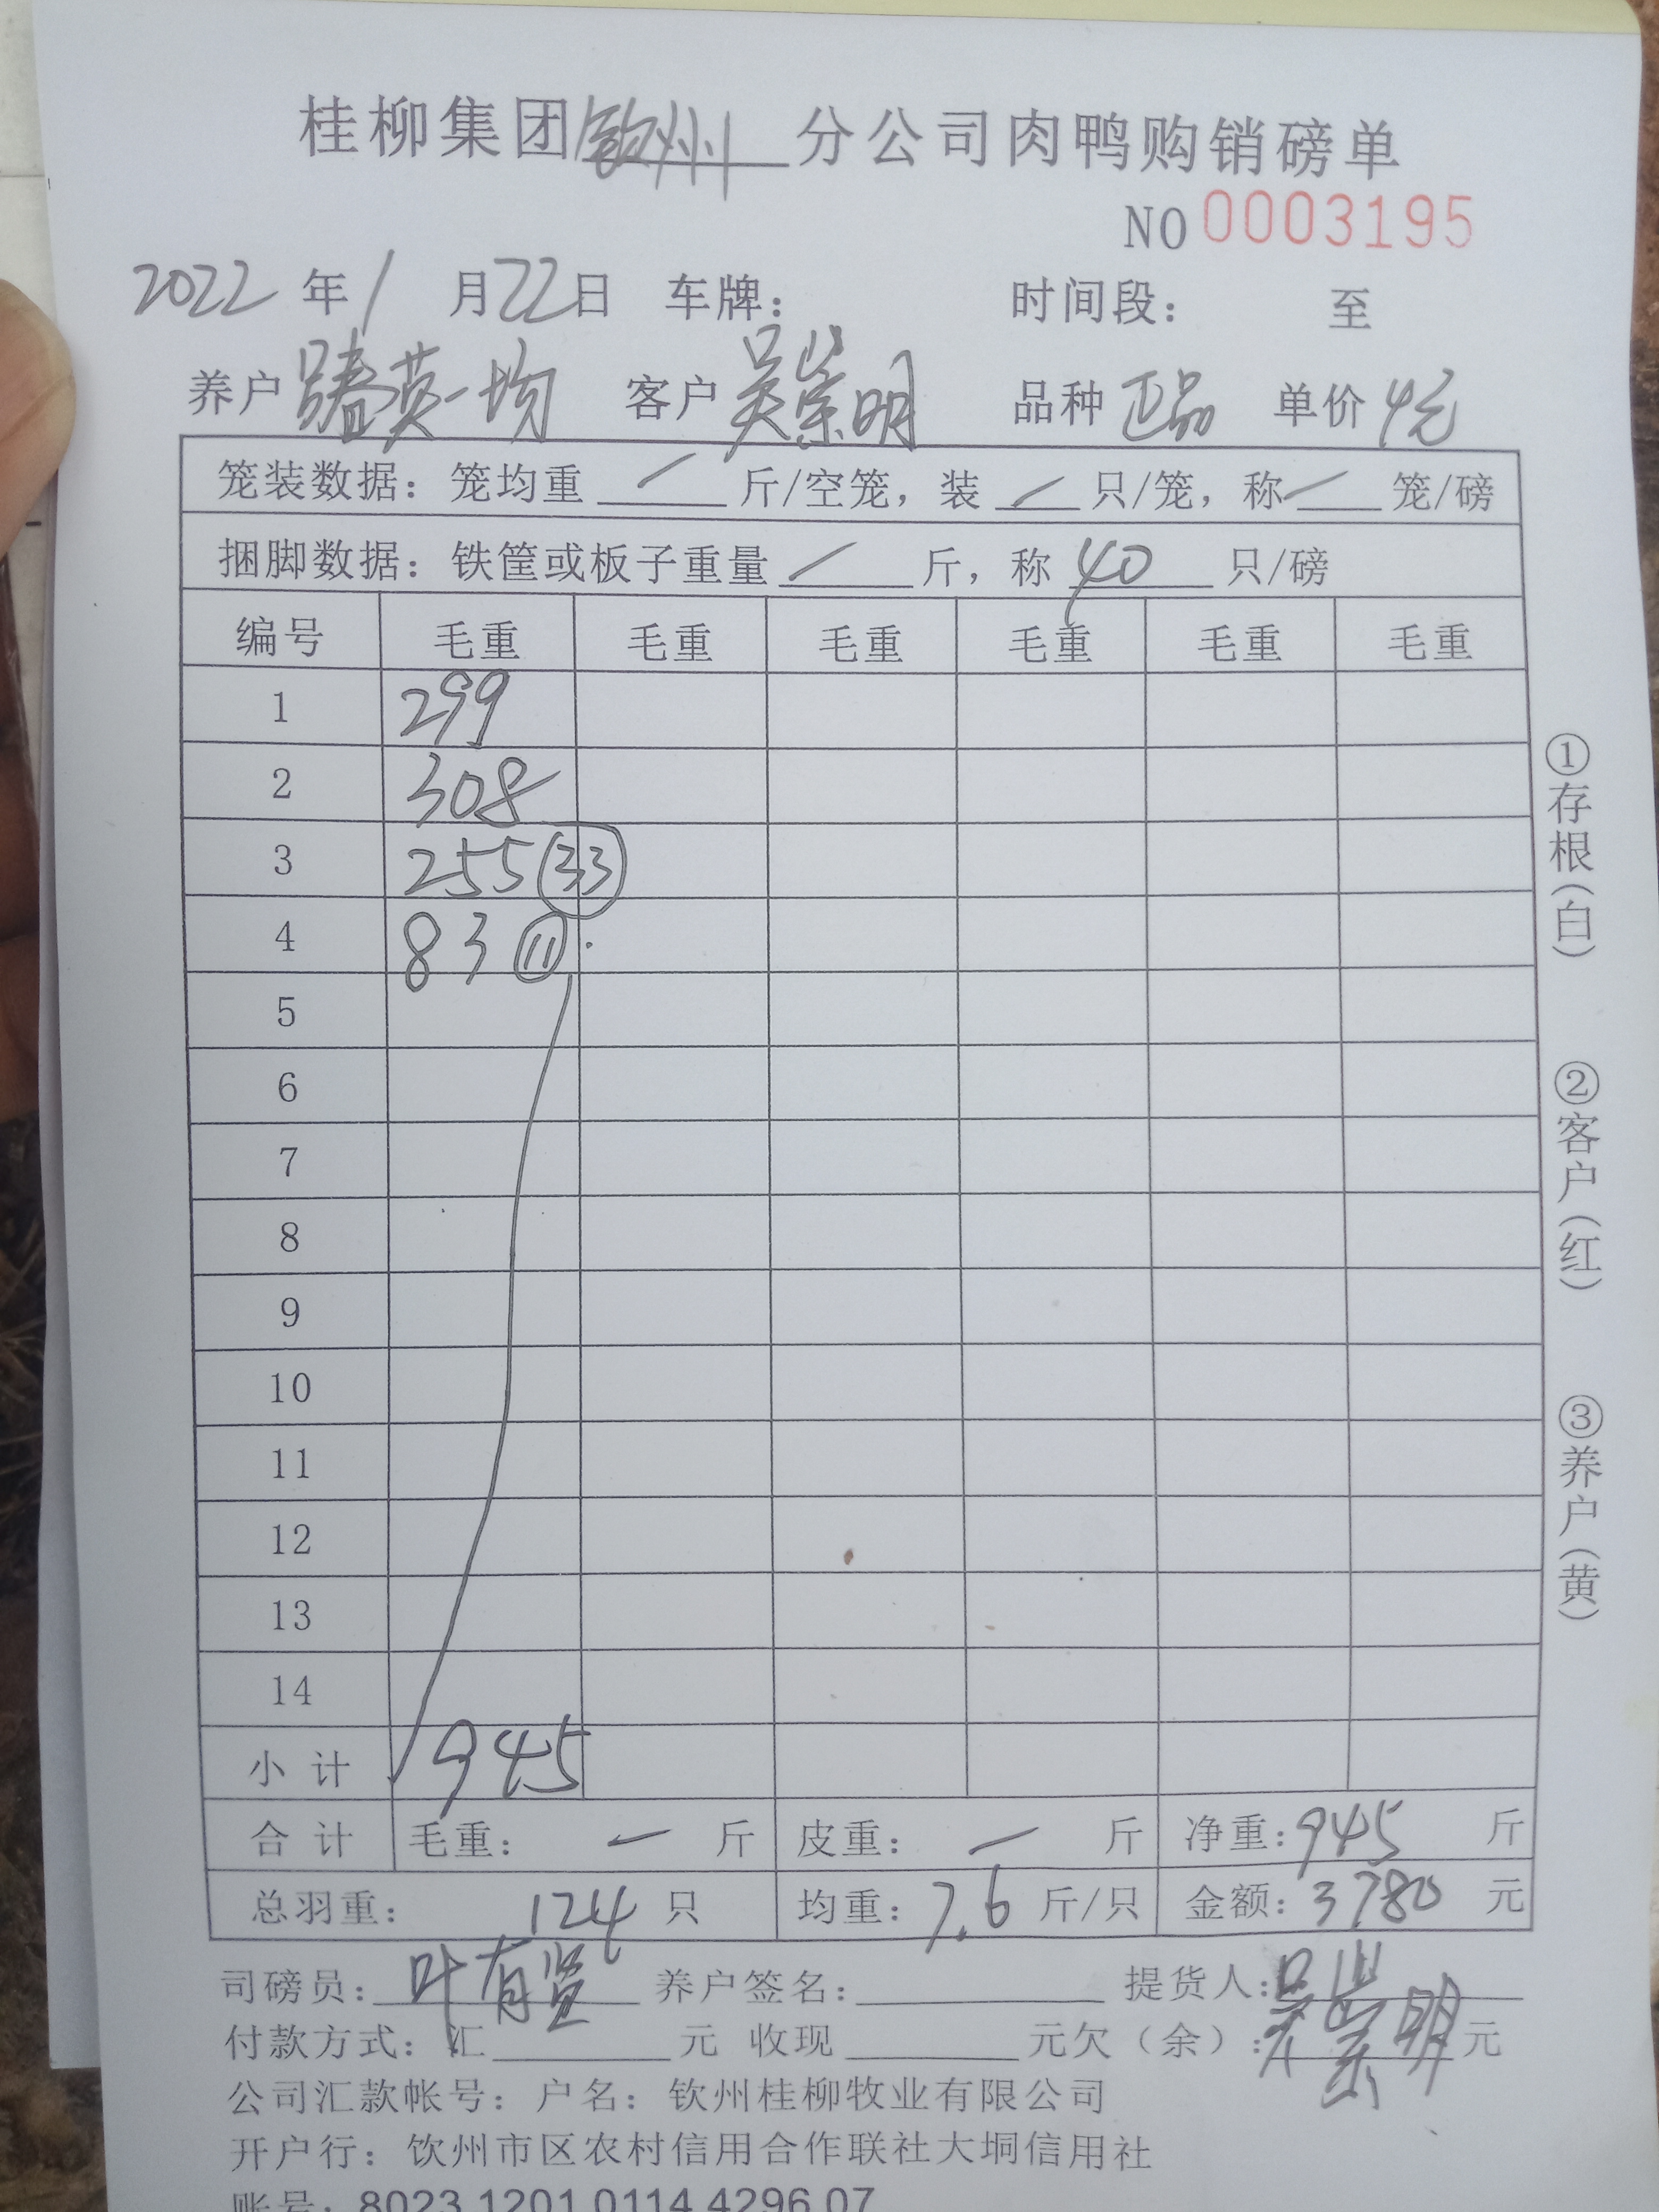 桂柳集团钦州分公司肉鸭购销磅单
NO 0003195
2022年1月22日 车牌： 时间段： 至
养户 英均 客户 吴崇明 品种 正品 单价 4元
笼装数据：笼均重 / 斤/空笼，装 / 只/笼，称 / 笼/磅
捆脚数据：铁筐或板子重量 / 斤，称 40 只/磅
编号 毛重 毛重 毛重 毛重 毛重 毛重
1 299
2 308
3 255 33
4 83 11
5
6
7
8
9
10
11
12
13
14
小计 945
合计 毛重： — 斤 皮重： — 斤 净重：945 斤
总羽重： 124 只 均重：7.6 斤/只 金额：3780 元
司磅员：叶有贤 养户签名： 提货人：吴崇明
付款方式：汇 元 收现 元欠（余）： 元
公司汇款帐号：户名：钦州桂柳牧业有限公司
开户行：钦州市区农村信用合作联社大垌信用社
账号：8023 1201 0114 4296 07
①存根（白）
②客户（红）
③养户（黄）